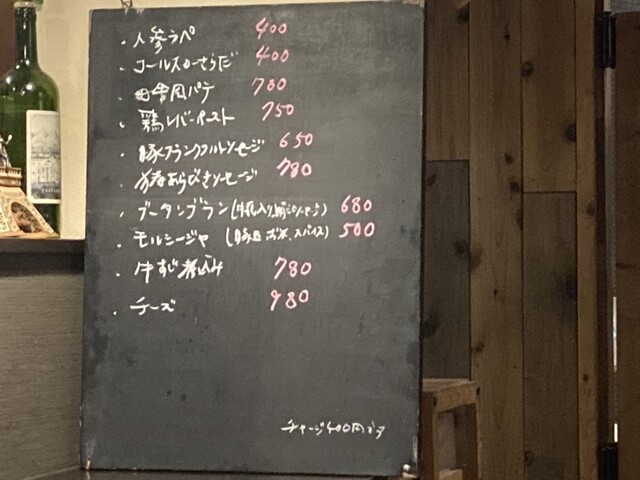 ・人参ラペ 400
・コールスローさらだ 400
・田舎風パテ 700
・鶏レバーペースト 750
・豚フランクフルトソーセージ 650
・猪あらびきソーセージ 780
・ブータンブラン (牛乳入り ソーセージ) 680
・モルシージャ (豚血 お米、スパイス) 500
・牛すじ煮込み 780
・チーズ 980
チャージ400円です